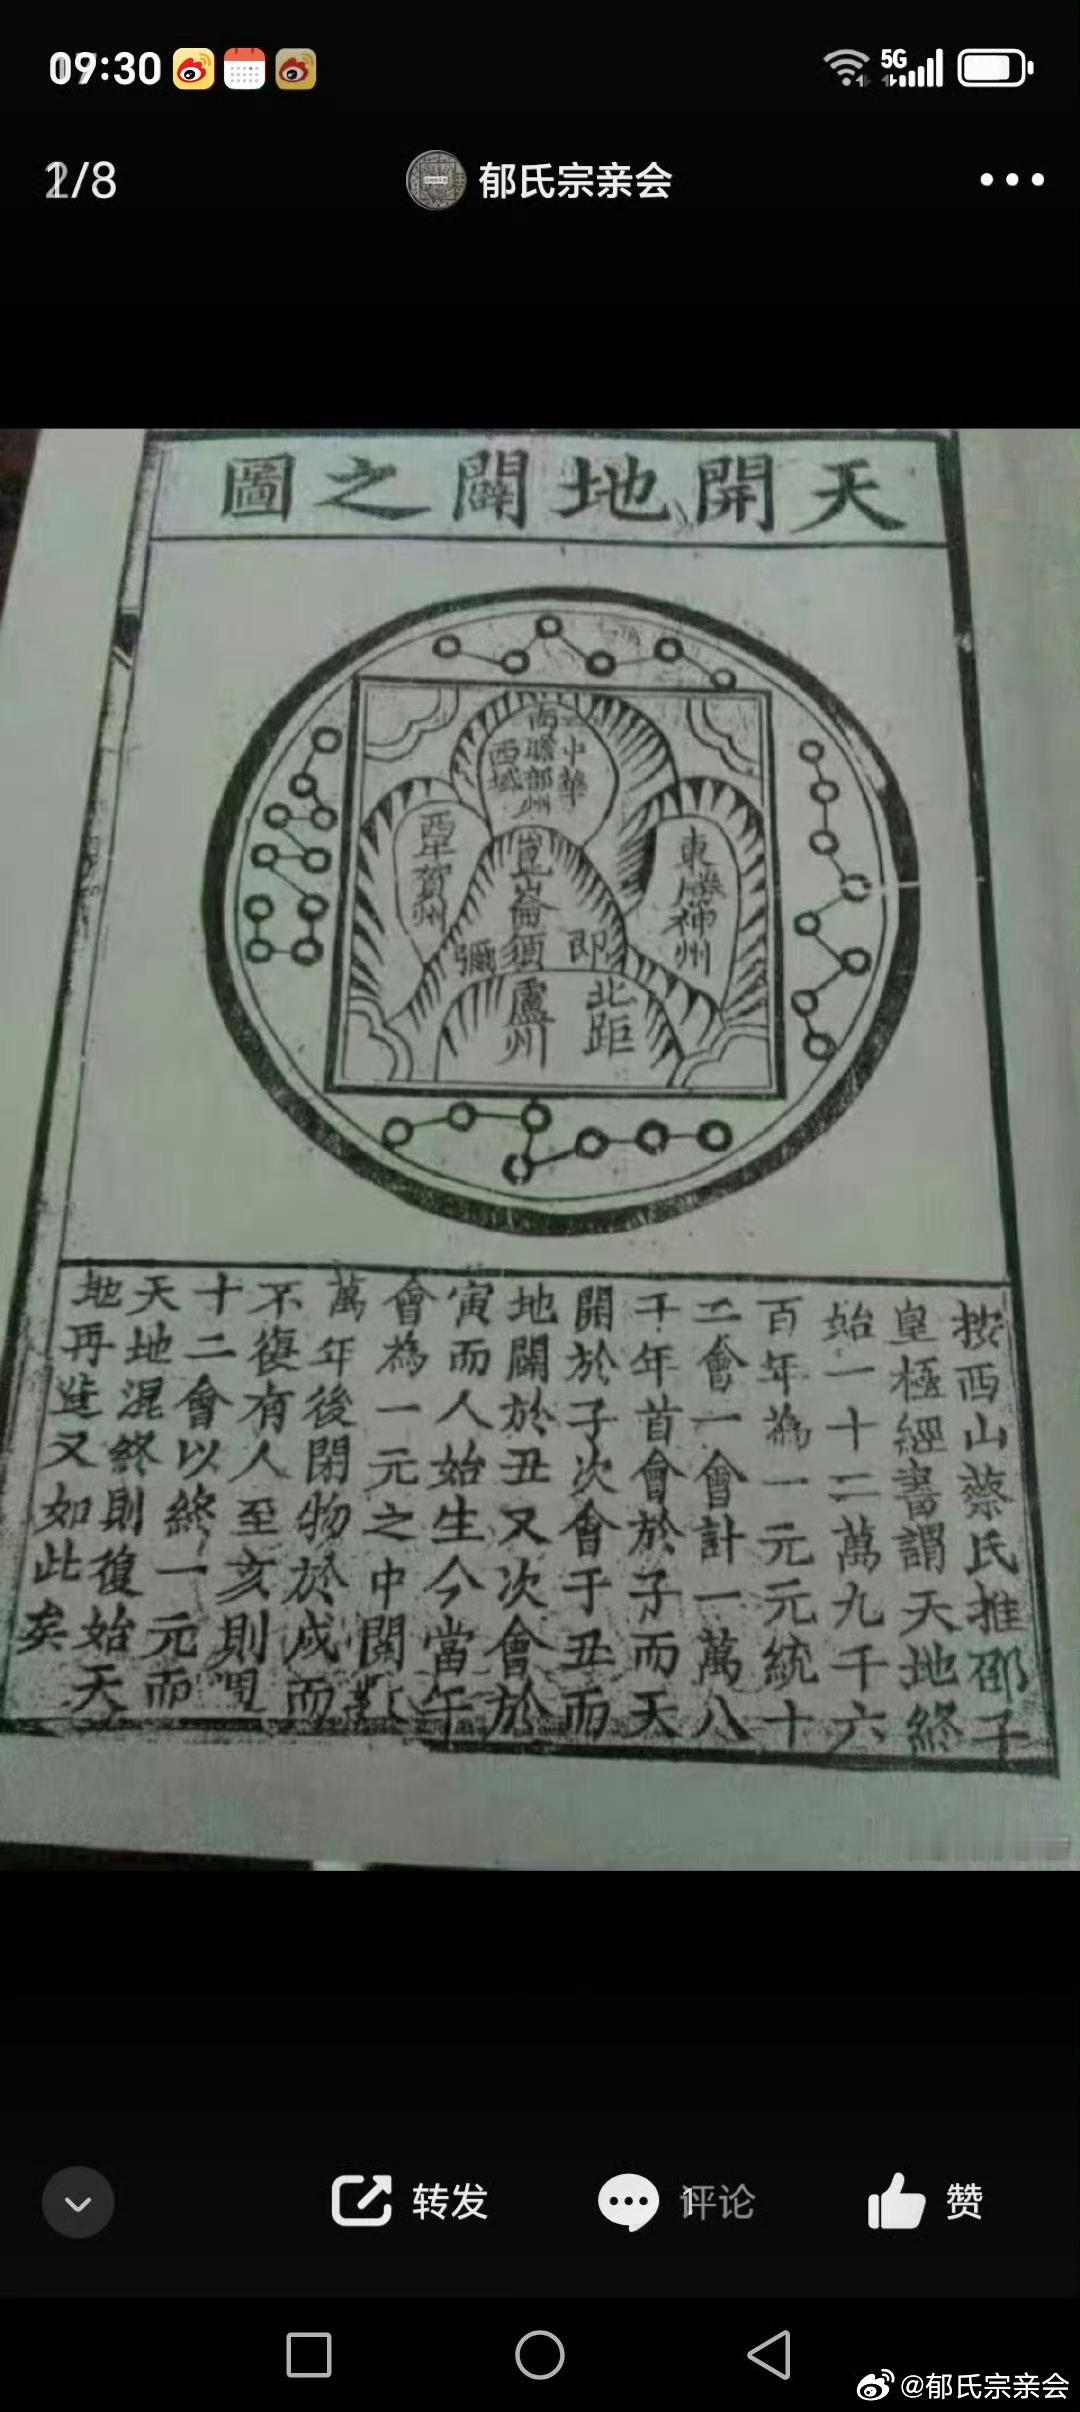 09:30
5G
2/8 郁氏宗亲会
天開地闢之圖
南贍部州
中華
西域
東勝神州
西牛賀州
崑崙即須彌
北距盧州
按西山蔡氏推邵子
皇極經書謂天地終
始一十二萬九千六
百年為一元元統十
二會一會計一萬八
千年首會於子而天
開於子次會于丑而
地闢於丑又次會於
寅而人始生今當午
會為一元之中閱
萬年後閉物於戌而
不復有人至亥則
十二會以終一元而
天地混終則復始天
地再造又如此矣
转发
评论
赞
@郁氏宗亲会